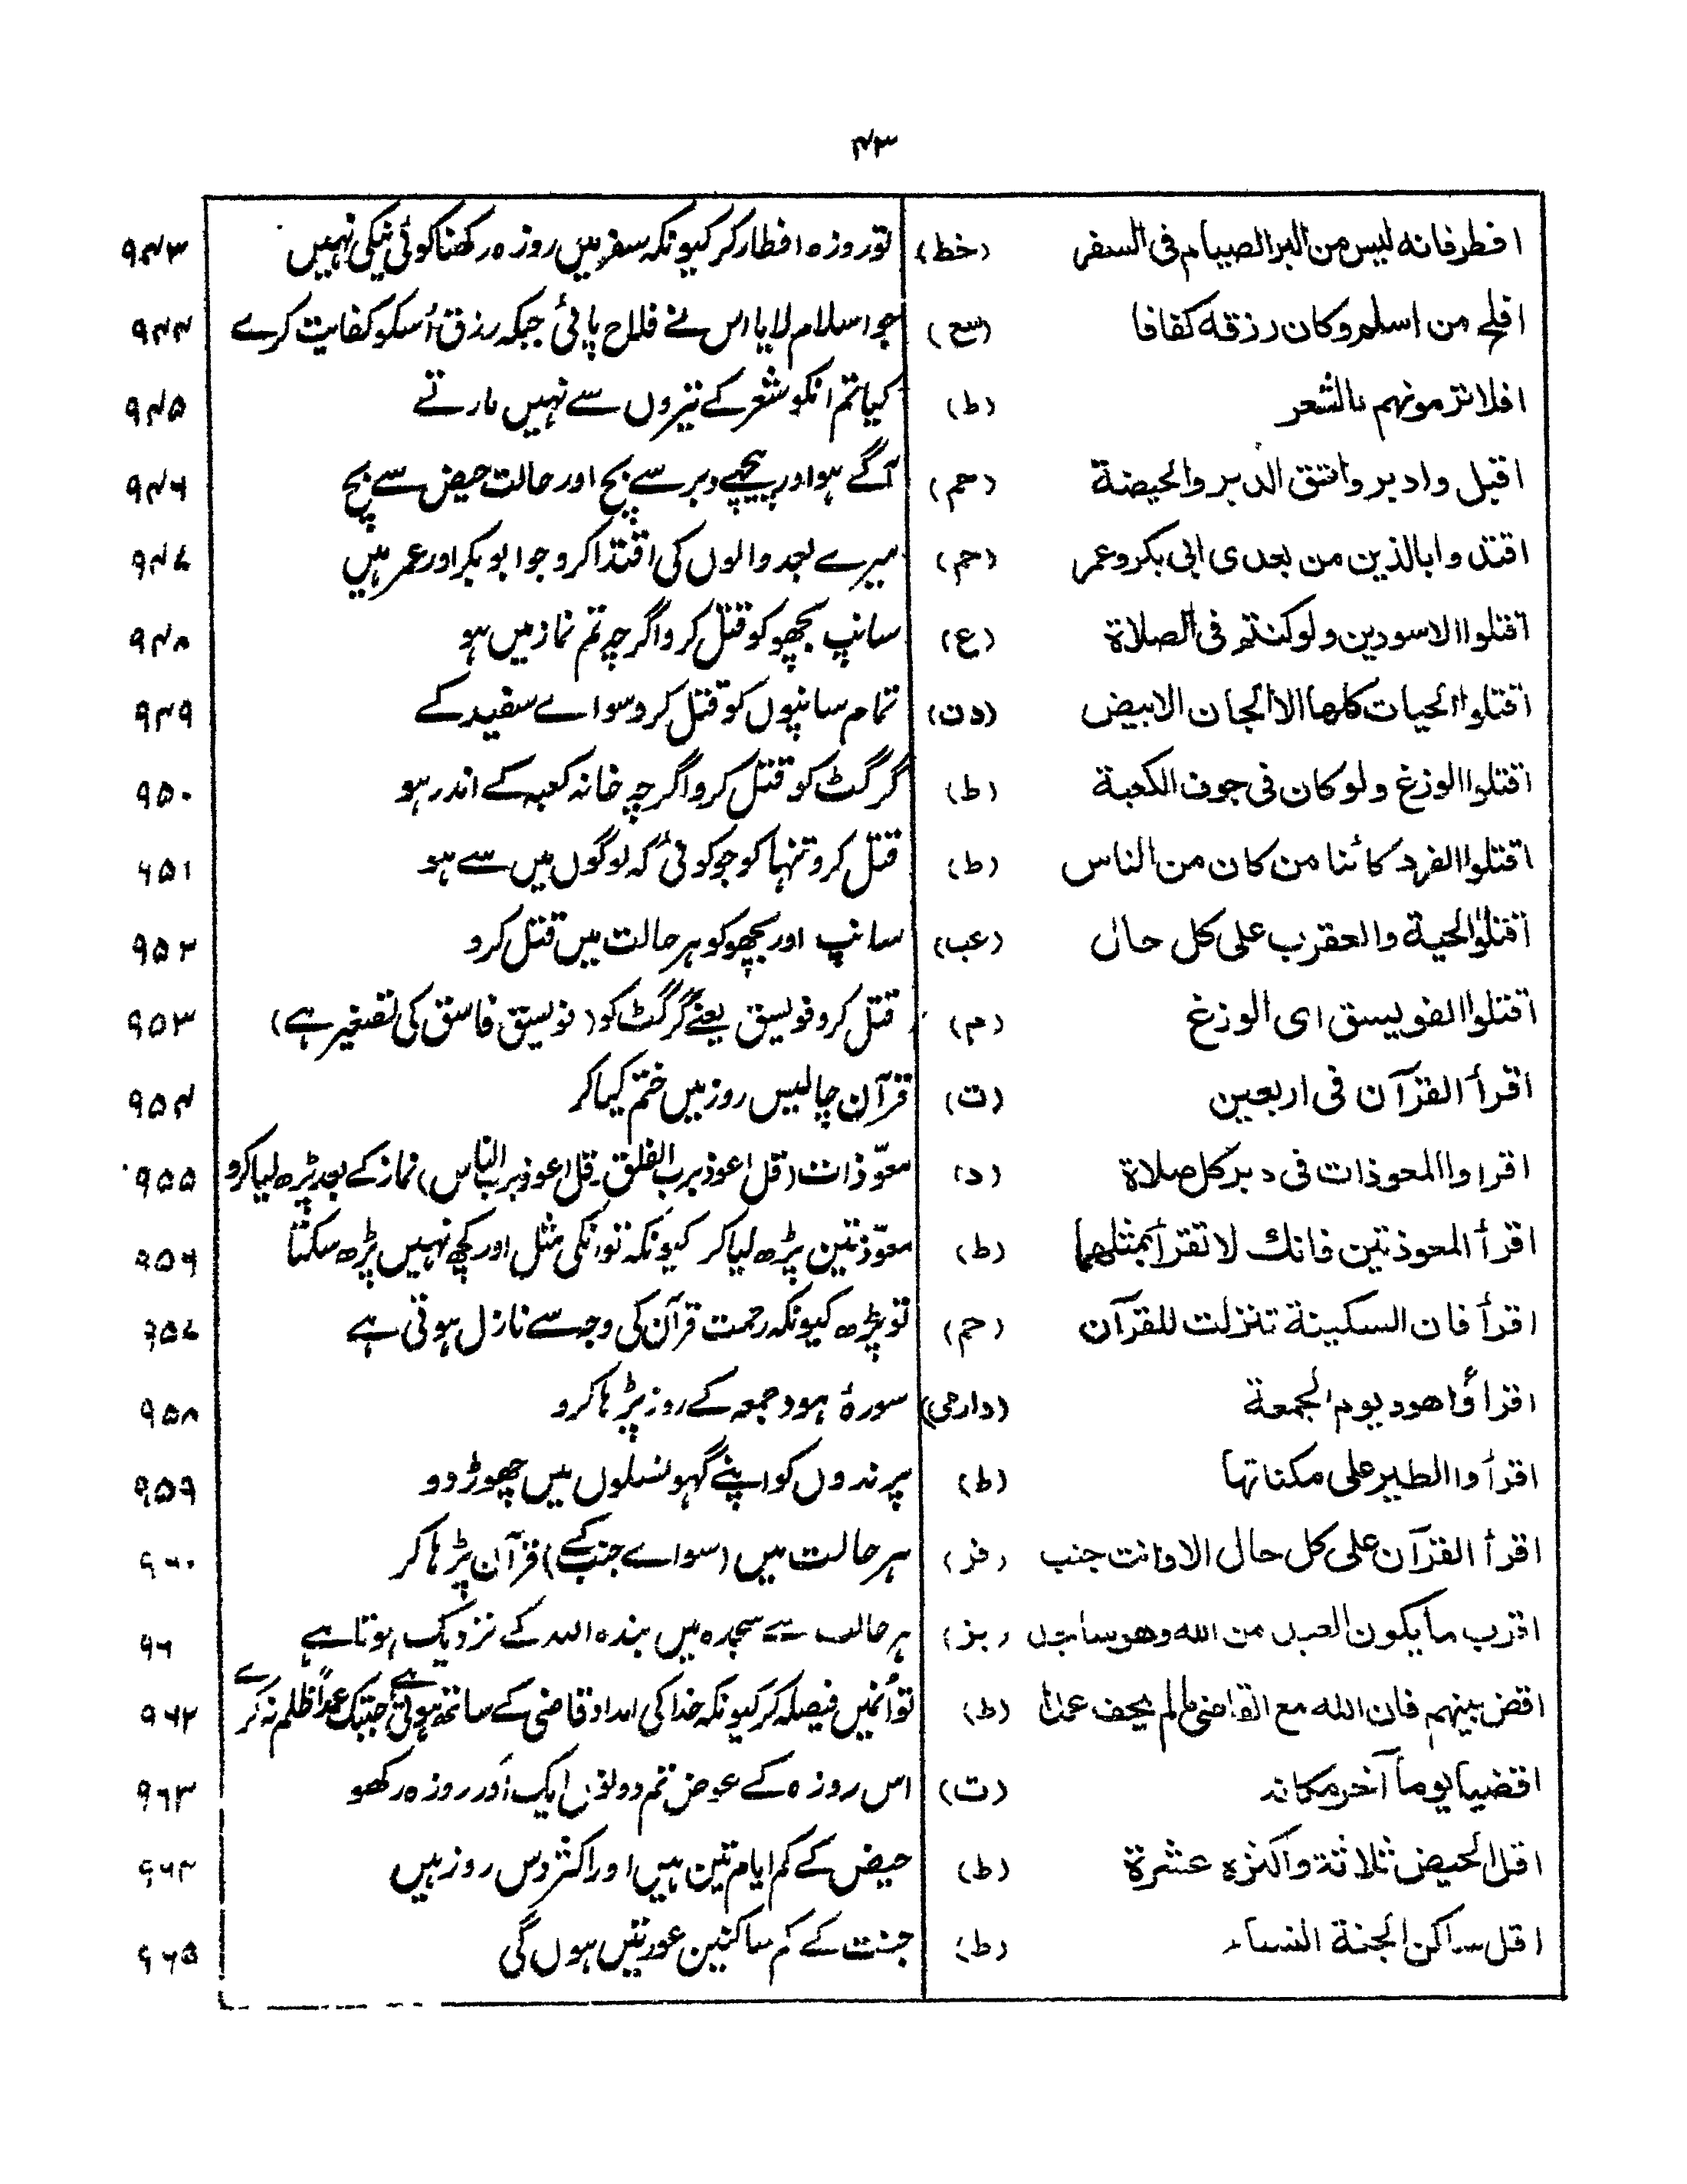 ۴۳
افطر فانه ليس من البر الصيام فى السفر (خط) تو روزہ افطار کر کیونکہ سفر میں روزہ رکھنا کوئی نیکی نہیں ۹۴۳
افلح من اسلم وكان رزقه كفافا (سع) جو اسلام لایا اس نے فلاح پائی جبکہ رزق اُسکو کفایت کرے ۹۴۴
افلا ترمونهم بالشعر (ط) کیا تم انکو شعر کے تیروں سے نہیں مارتے ۹۴۵
اقبل وادبر واتق الدبر والحيضة (حم) آگے ہو اور پیچھے دبر سے بچ اور حالت حیض سے بچ ۹۴۶
اقتدوا بالذين من بعدى ابى بكر وعمر (حم) میرے بعد والوں کی اقتدا کرو جو ابوبکر اور عمر ہیں ۹۴۷
اقتلوا الاسودين ولو كنتم فى الصلاة (ع) سانپ بچھو کو قتل کرو اگرچہ تم نماز میں ہو ۹۴۸
اقتلوا الحيات كلها الا الجان الابيض (دن) تمام سانپوں کو قتل کرو سوائے سفید کے ۹۴۹
اقتلوا الوزغ ولو كان فى جوف الكعبة (ط) گرگٹ کو قتل کرو اگرچہ خانہ کعبہ کے اندر ہو ۹۵۰
اقتلوا الفرد كائنا من كان من الناس (ط) قتل کرو تنہا کو جو کوئی کہ لوگوں میں سے ہو ۹۵۱
اقتلوا الحية والعقرب على كل حال (عب) سانپ اور بچھو کو ہر حالت میں قتل کرو ۹۵۲
اقتلوا الفويسق اى الوزغ (م) قتل کرو فویسق یعنے گرگٹ کو (فویسق فاسق کی تصغیر ہے) ۹۵۳
اقرأ القرآن فى اربعين (ت) قرآن چالیس روز میں ختم کیا کر ۹۵۴
اقراوا المعوذات فى دبر كل صلاة (د) معوّذات (قل اعوذ برب الفلق۔ قل اعوذ برب الناس) نماز کے بعد پڑھ لیا کرو ۹۵۵
اقرأ المعوذتين فانك لا تقرأ بمثلهما (ط) معوّذتین پڑھ لیا کر کیونکہ تو انکی مثل اور کچھ نہیں پڑھ سکتا ۹۵۶
اقرأ فان السكينة تنزلت للقرآن (حم) تو پڑھ کیونکہ رحمت قرآن کی وجہ سے نازل ہوتی ہے ۹۵۷
اقرأوا هود يوم الجمعة (دارمی) سورۂ ہود جمعہ کے روز پڑہا کرو ۹۵۸
اقرأوا الطير على مكناتها (ط) پرندوں کو اپنے گہونسلوں میں چھوڑ دو ۹۵۹
اقرأ القرآن على كل حال الا وانت جنب (فر) ہر حالت میں (سوائے جنب کے) قرآن پڑہا کر ۹۶۰
اقرب ما يكون العبد من الله وهو ساجد (بز) ہر حالت سے سجدہ میں بندہ اللہ کے نزدیک ہوتا ہے ۹۶
اقض بينهم فان الله مع القاضى ما لم يحف عمدا (ط) تو اُنمیں فیصلہ کر کیونکہ خدا کی امداد قاضی کے ساتھ ہوتی ہے جبتک عمداً ظلم نہ کرے ۹۶۲
اقضيا يوما آخر مكانه (ت) اس روزہ کے عوض تم دونوں ایک اَور روزہ رکھو ۹۶۳
اقل الحيض ثلاثة واكثره عشرة (ط) حیض کے کم ایام تین ہیں اور اکثر دس روز ہیں ۹۶۴
اقل ساكن الجنة النساء (ط) جنت کے کم ساکنین عورتیں ہوں گی ۹۶۵